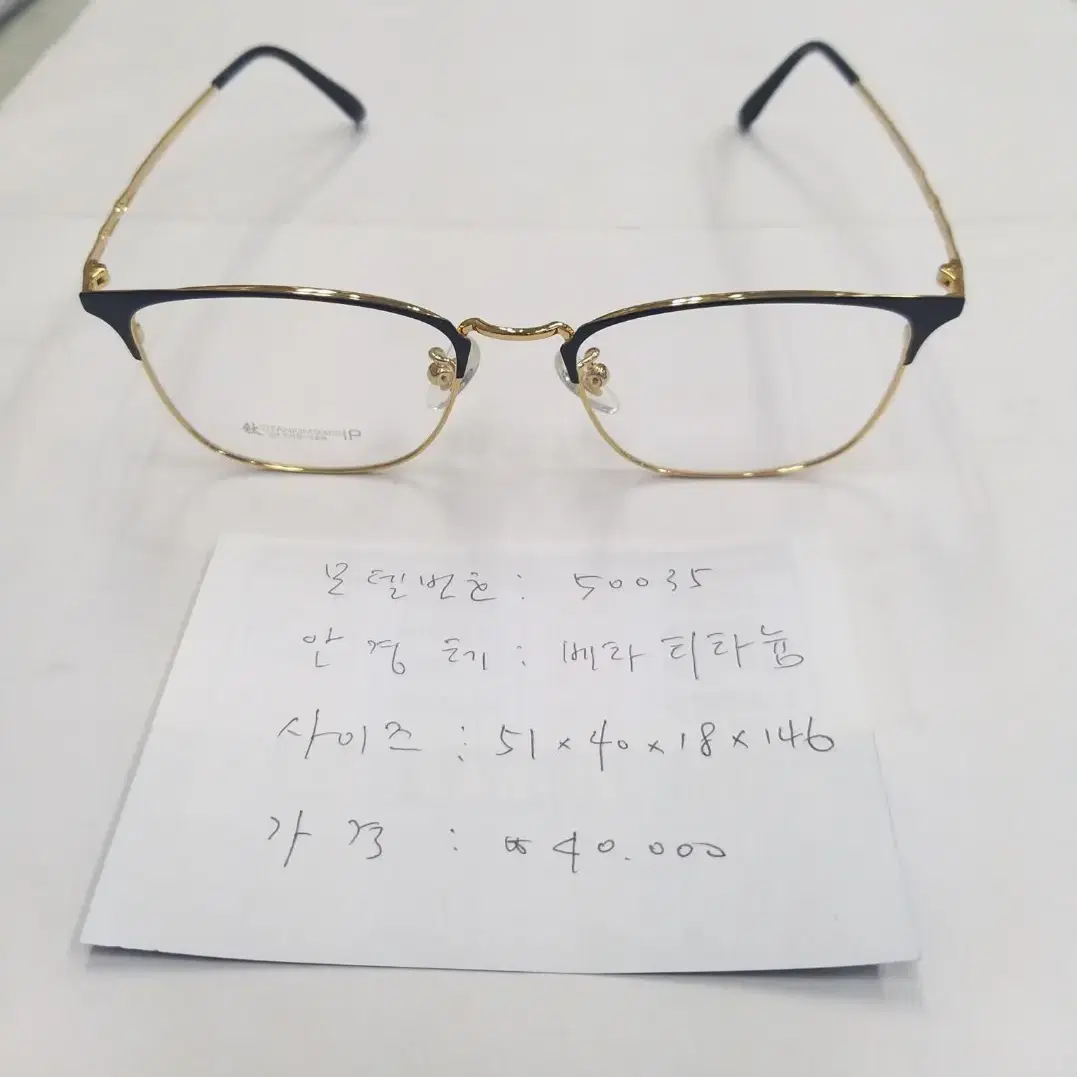 IP
모델번호 : 50035
안경테 : 베타 티타늄
사이즈 : 51×40×18×146
가격 : ₩40.000